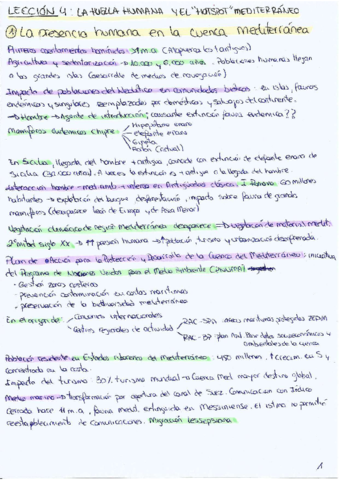 LECCIÓN 4: LA HUELLA HUMANA Y EL "HOTSPOT" MEDITERRÁNEO
① La presencia humana en la cuenca mediterránea
Primeros asentamientos homínidos: 
Agricultura y sedentarización → 10.000 y 6.000 años. Poblaciones humanas llegan
a las grandes islas (desarrollo de medios de navegación)
Impacto de poblaciones del Neolítico en comunidades bióticas: en islas, faunas
endémicas y singulares reemplazadas por domésticas y salvajes del continente.
→ Hombre → Agente de introducción; causante extinción fauna endémica??
Mamíferos endémicos Chipre
Hipopótamo enano
elefante enano
Gineta
Ratón (actual)
En Sicilia, llegada del hombre + antigua, coincide con extinción de elefante enano de
Sicilia
Interacción hombre - med. amb + intensa en Antigüedad clásica. I
habitantes → explotación del bosque, deforestación, impacto sobre fauna de grandes
mamíferos (desaparece león de Europa y de Asia Menor)
Vegetación climácica de región mediterránea desaparece → vegetación de matorral medit.
2ª mitad siglo XX → ↑↑ presión humana → ↑población, turismo y urbanización desaforada
Plan de Acción para la Protección y Desarrollo de la Cuenca del Mediterráneo: iniciativa
del Programa de Naciones Unidas para el Medio Ambiente (PNUMA)
- Gestión zonas costeras
- prevención contaminación
- preservación de la biodiversidad mediterránea
En el origen de:
convenios internacionales
Centros regionales de actividad
RAC-SPA: áreas marítimas protegidas ZEPIM
RAC-BP: plan Azul
ambientales de la cuenca
Población residente en Estados ribereños del Mediterráneo: 450 millones. ↑crecim. en S y
concentrada en la costa.
Impacto del turismo: 30% turismo mundial → Cuenca Med. mayor destino global.
Medio marino → transformación por apertura del canal de Suez. Comunicación con Índico
cerrada hace fauna medit. extinguida en Messiniense. El istmo no permitió
reestablecimiento de comunicaciones. Migración Lessepsiana.
1